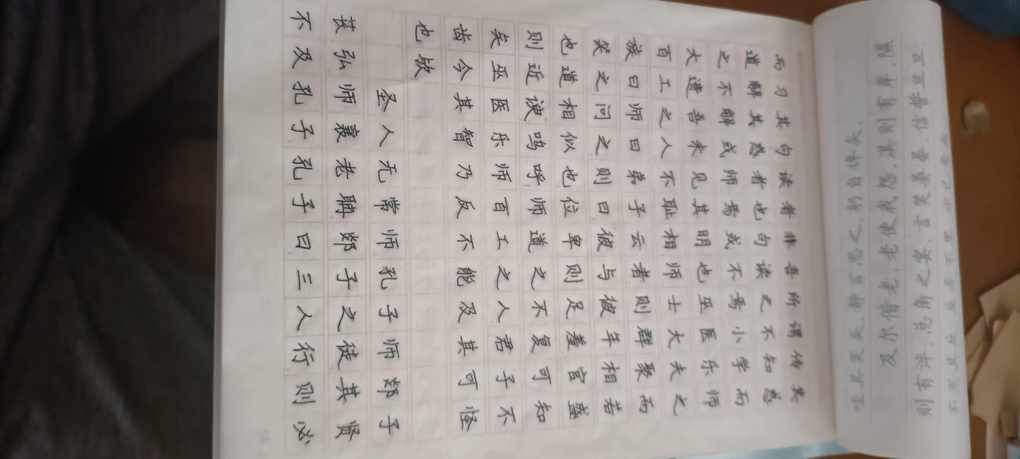 而习其句读者非吾所谓传其
道解其惑者也句读之不知惑
之不解或师焉或不焉小学而
大遗吾未见其明也巫医乐师
百工之人不耻相师士大夫之
族曰师曰弟子云者则群聚而
笑之问之则曰彼与彼年相若
也道相似也位卑则足羞官盛
则近谀呜呼师道之不复可知
矣巫医乐师百工之人君子不
齿今其智乃反不能及其可怪
也欤
圣人无常师孔子师郯子
苌弘师襄老聃郯子之徒其贤
不及孔子孔子曰三人行则必
咥其笑矣,静言思之,躬自悼矣。
及尔偕老,老使我怨。淇则有岸,隰
则有泮。总角之宴,言笑晏晏,信誓旦旦,